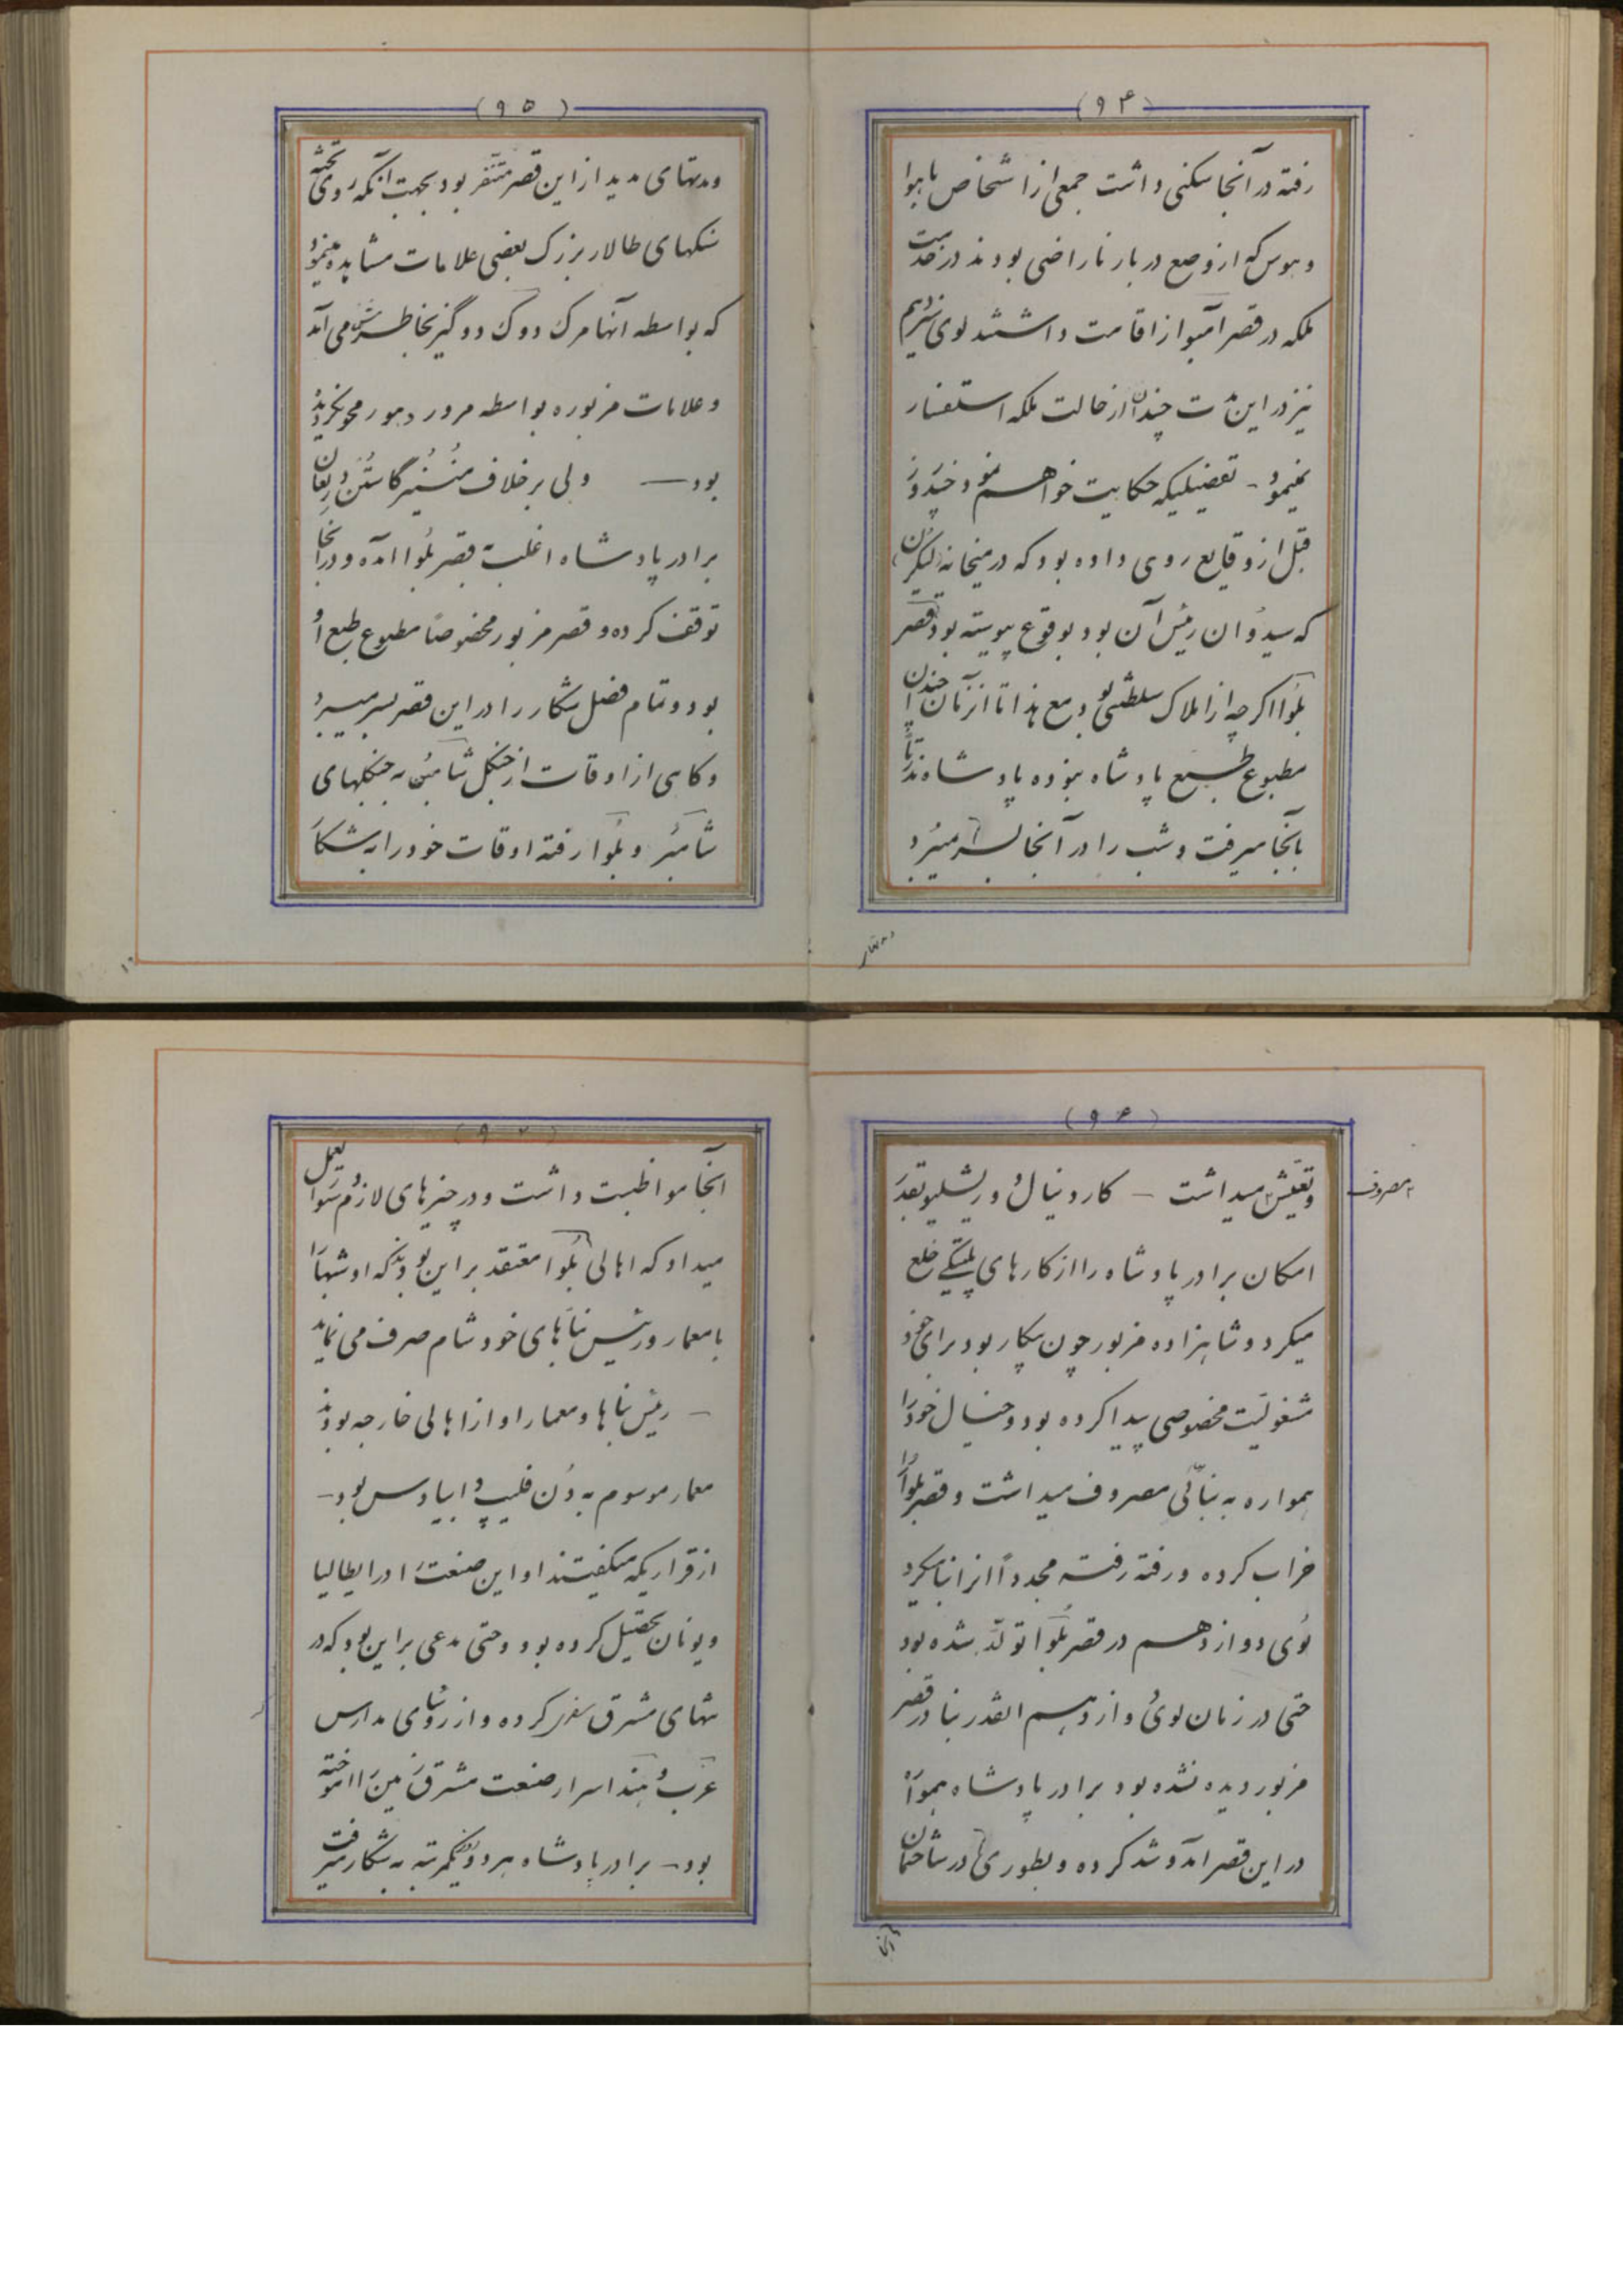 (۹۴)
رفته در آنجا سکنی داشت جمعی از اشخاص با هوا
و هوس که از وضع دربار ناراضی بودند در خدمت
ملکه در قصر آمبواز اقامت داشتند لوی سیزدهم
نیز در این مدت چندان از حالت ملکه استفسار
نمیمود - تفصیلیکه حکایت خواهم نمود چند روز
قبل از وقایع روی داده بود که در میخانه
که سیدوان رئیس آن بود بوقوع پیوسته بود قصر
بلوا اگر چه از املاک سلطنتی بود مع هذا تا آنزمان چندان
مطبوع طبع پادشاه نبوده پادشاه ندرتاً
بآنجا میرفت و شب را در آنجا بسر میبرد
و مدتهای
(۹۵)
و مدتهای مدید از این قصر متنفر بود بجهت آنکه روی تخته
سنگهای طالار بزرک بعضی علامات مشاهده مینمود
که بواسطه آنها مرک دوک دوگیز بخاطرش می آمد
و علامات مزبوره بواسطه مرور دهور محو نگردیده
بود — ولی برخلاف مُنسُیر گاستُن دُرلِعان
برادر پادشاه اغلب بقصر بلُوا آمده و در آنجا
توقف کرده و قصر مزبور مخصوصاً مطبوع طبع او
بود و تمام فصل شکار را در این قصر بسر میبرد
و گاهی از اوقات از جنگل شامبُن به جنگلهای
شامبُر و بلُوا رفته اوقات خود را به شکار
(۹۶)
و تعیش میداشت - کاردینال دُ ریشلیو بقدر
مصروف
امکان برادر پادشاه را از کارهای پلتیکی خلع
میکرد و شاهزاده مزبور چون بیکار بود برای خود
مشغولیت مخصوصی پیدا کرده بود و خیال خود را
همواره به بنائی مصروف میداشت و قصر بلُوا را
خراب کرده و رفته رفته مجدداً انرا بنا میکرد
لُوی دوازدهم در قصر بلُوا تولد شده بود
حتی در زمان لوی دوازدهم انقدر بنا در قصر
مزبور دیده نشده بود برادر پادشاه همواره
در این قصر آمد و شد کرده و بطوری در ساختمان
آنجا
(۹۷)
آنجا مواظبت داشت و در چیزهای لازم سواد بعمل
میداد که اهالی بلُوا معتقد براین بودند که او شبها
با معمار و رئیس بناهای خود شام صرف می نماید
- رئیس بناها و معمار او از اهالی خارجه بودند
معمار موسوم به دُن فلیپ دابیادس بود -
از قراریکه میگفتند او این صنعت را در ایطالیا
و یونان تحصیل کرده بود و حتی مدعی براین بود که در
شهای مشرق سفر کرده و از رؤسای مدارس
عرب و هند اسرار صنعت مشرق زمین را اموخته
بود - برادر پادشاه هر دو روز یکمرتبه به شکار میرفت